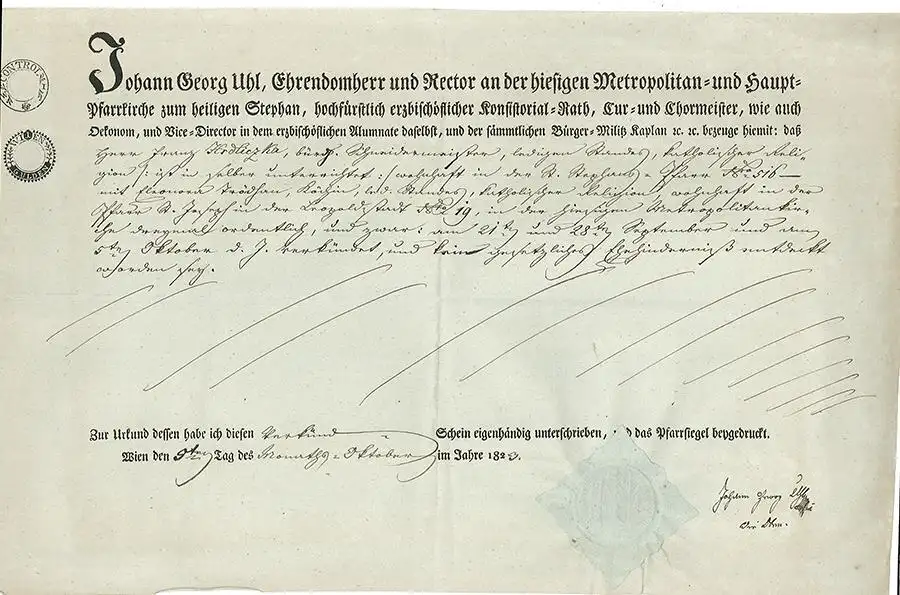 CONTROL
Johann Georg Uhl, Ehrendomherr und Rector an der hiesigen Metropolitan- und Haupt-
Pfarrkirche zum heiligen Stephan, hochfürstlich erzbischöflicher Konsistorial-Rath, Cur- und Chormeister, wie auch
Oekonom, und Vice-Director in dem erzbischöflichen Alumnate daselbst, und der sämmtlichen Bürger-Militz Kaplan ꝛc. ꝛc. bezeuge hiemit: daß
Herr Franz Hrdliczka, bürgl. Schneidermeister, ledigen Standes, katholischer Reli-
gion /: ist in selber unterrichtet :/ wohnhaft in der St. Stephans-Pfarr Nro 516 —
mit Eleonora Köchin, led. Standes, katholischer Religion, wohnhaft in der
Pfarr St. Joseph in der Leopoldstadt Nro 19, in der hiesigen Metropolitankir-
che dreymal ordentlich, und zwar: am 21ten und 28ten September und am
5ten Oktober d. J. verkündet, und kein gesetzliches Ehehinderniß entdeckt
worden sey.
Zur Urkund dessen habe ich diesen Verkünd- Schein eigenhändig unterschrieben, und das Pfarrsiegel beygedruckt.
Wien den Tag des Monaths Oktober im Jahre 1823.
Johann Georg Uhl